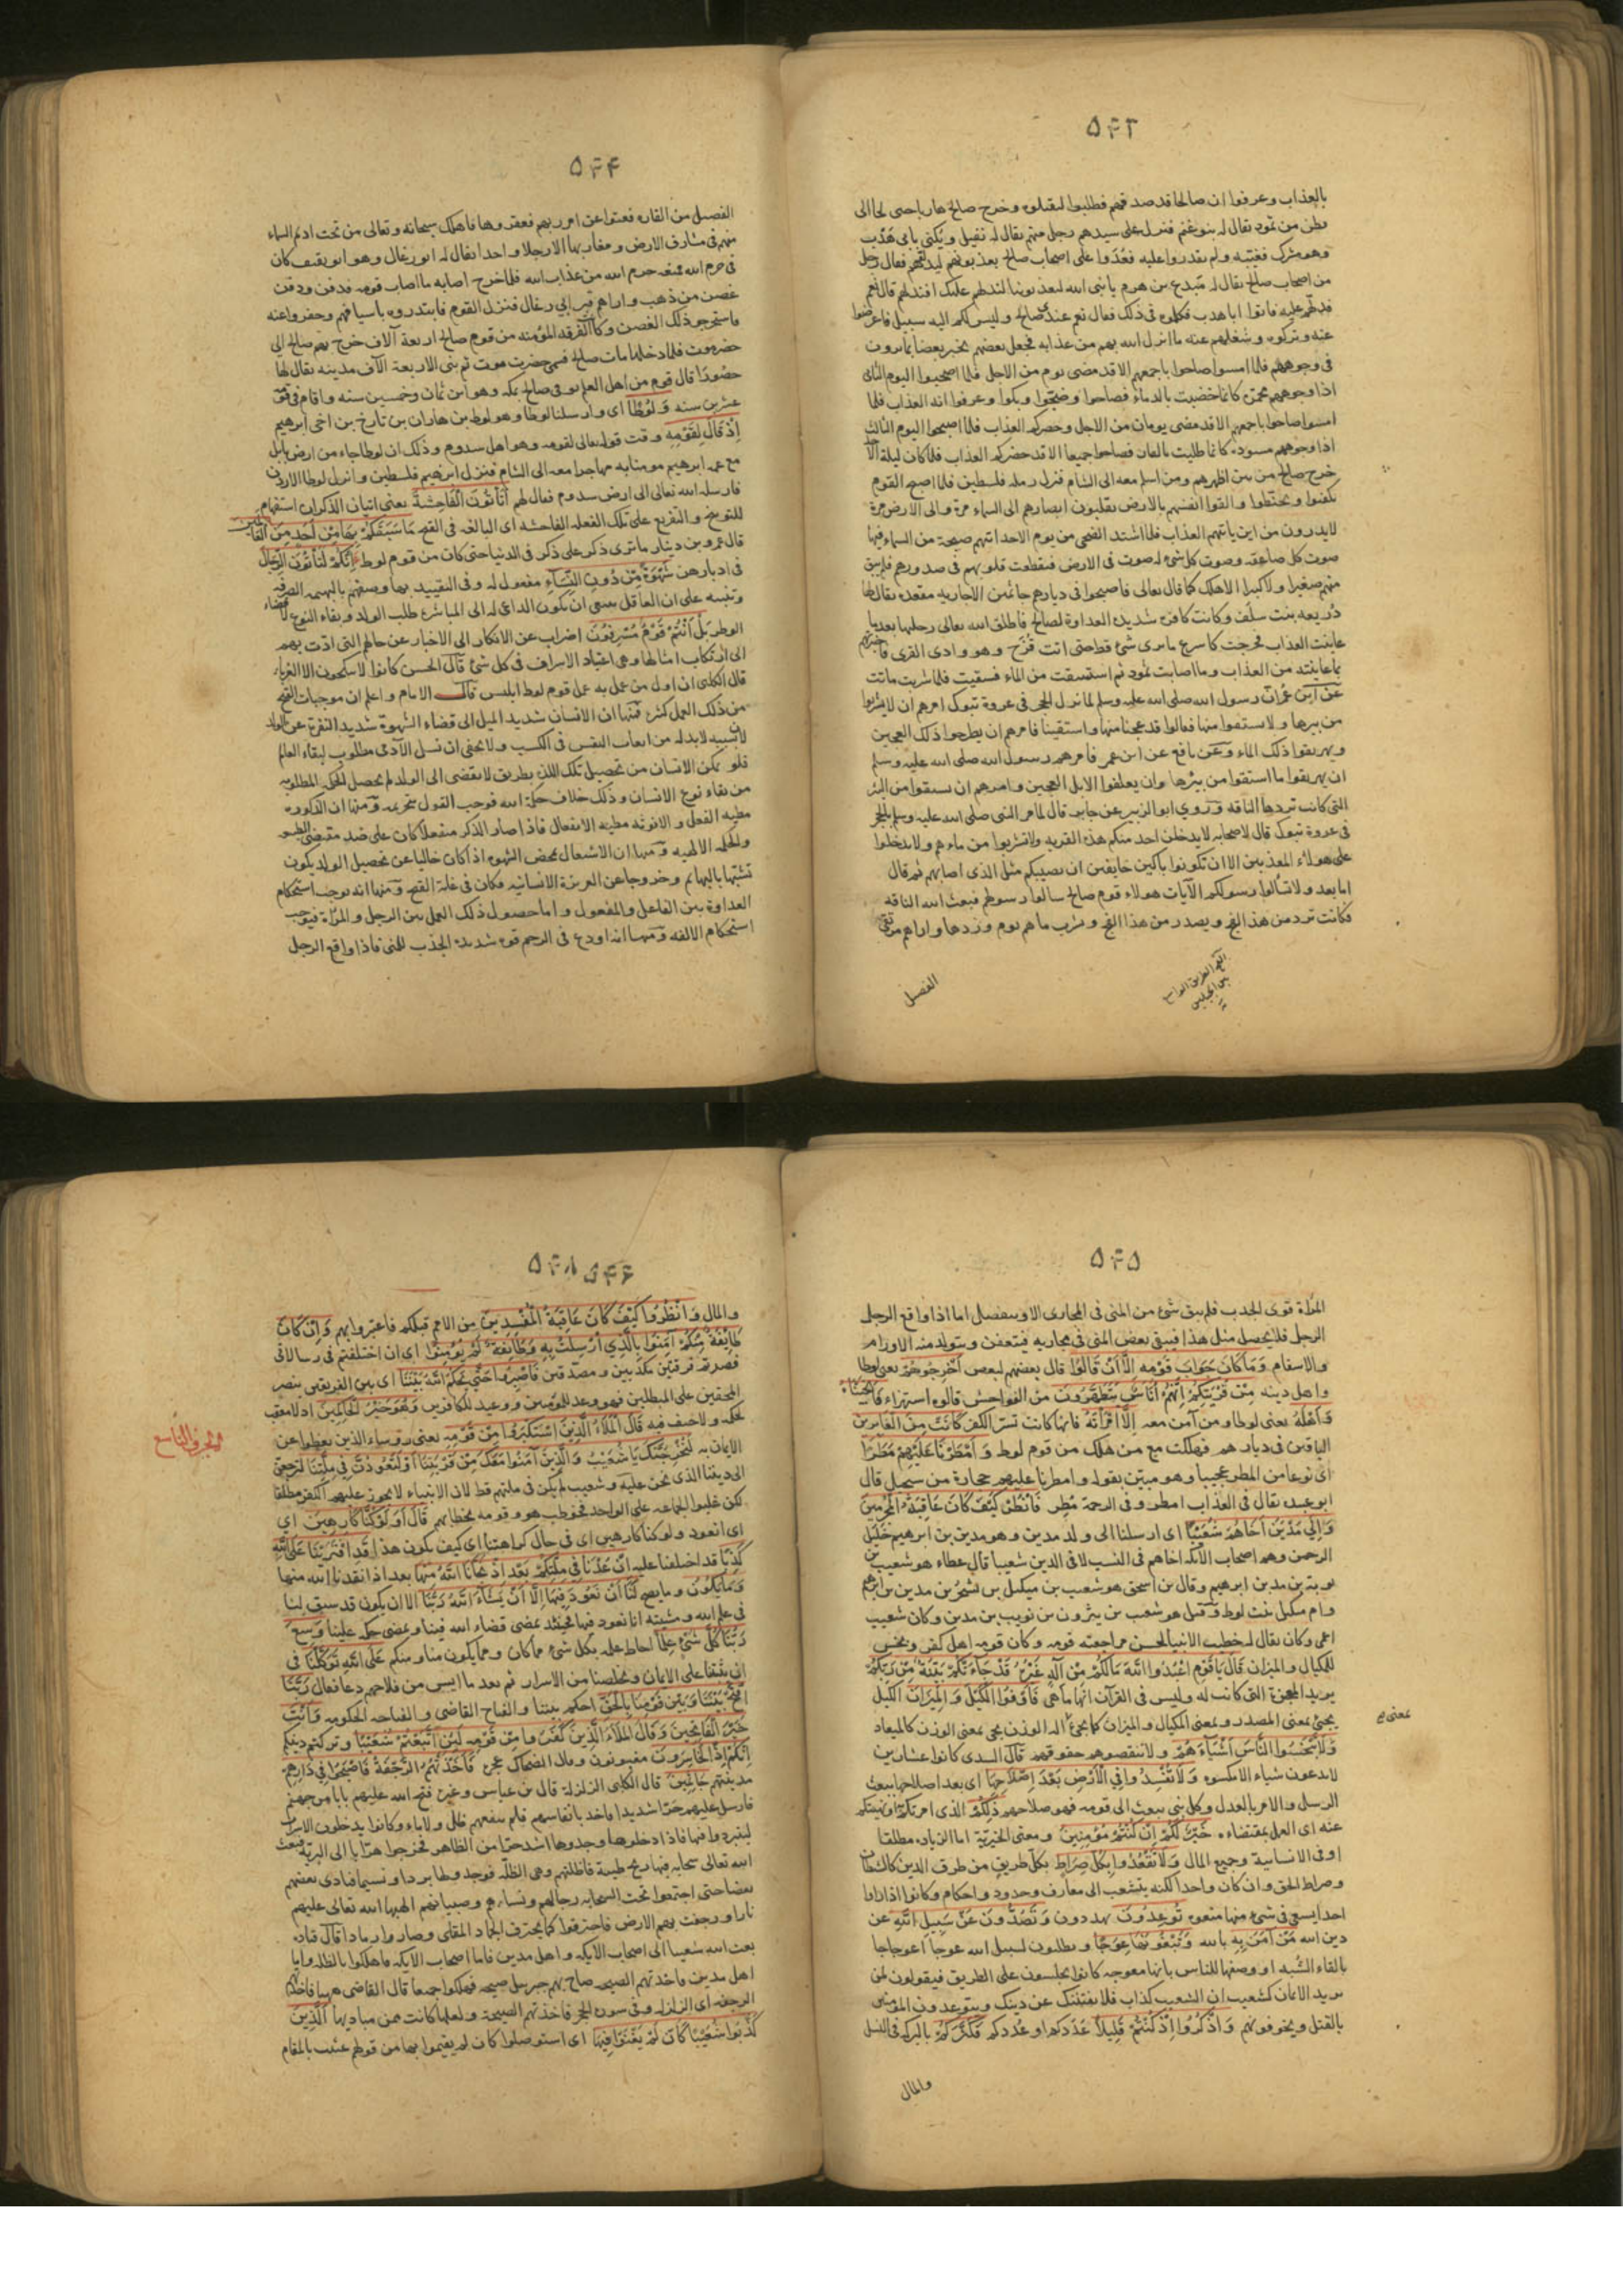 ۵۴۳
بالعذاب وعرفوا ان صالحا قد صدقهم فطلبوا ليقتلوه وخرج صالح هاربا حتى لجا الى
بطن من ثمود يقال له بنو غنم فنزل على سيدهم رجل منهم يقال له نفيل ويكنى بابى هدب
وهو مشرك فغيبه ولم يقدروا عليه فغدوا على اصحاب صالح يعذبونهم ليدلوهم فقال رجل
من اصحاب صالح يقال له مبدع بن هرم يا نبى الله ليعذبوننا لندلهم عليك افندلهم قال نعم
فدلهم عليه فاتوا ابا هدب فكلموه فى ذلك فقال نعم عندى صالح وليس لكم اليه سبيل فاعرضوا
عنه وتركوه وشغلهم عنه ما انزل الله بهم من عذابه فجعل بعضهم يخبر بعضا بما يرون
فى وجوههم فلما امسوا صاحوا باجمعهم الا قد مضى يوم من الاجل فلما اصبحوا اليوم الثانى
اذا وجوههم محمرة كانما خضبت بالدماء فصاحوا وضجوا وبكوا وعرفوا انه العذاب فلما
امسوا صاحوا باجمعهم الا قد مضى يومان من الاجل وحضركم العذاب فلما اصبحوا اليوم الثالث
اذا وجوههم مسودة كانما طليت بالقار فصاحوا جميعا الا قد حضركم العذاب فلما كان ليلة الاحد
خرج صالح من بين اظهرهم ومن اسلم معه الى الشام فنزل رملة فلسطين فلما اصبح القوم
تكفنوا وتحنطوا والقوا انفسهم بالارض يقلبون ابصارهم الى السماء مرة والى الارض مرة
لا يدرون من اين ياتيهم العذاب فلما اشتد الضحى من يوم الاحد اتتهم صيحة من السماء فيها
صوت كل صاعقة وصوت كل شئ له صوت فى الارض فتقطعت قلوبهم فى صدورهم فلم يبق
منهم صغير ولا كبير الا هلك كما قال تعالى فاصبحوا فى ديارهم جاثمين الا جارية مقعدة يقال لها
ذريعة بنت سلف وكانت كافرة شديدة العداوة لصالح فاطلق الله تعالى رجليها بعد ما
عاينت العذاب فخرجت كاسرع ما يرى شئ قط حتى اتت قزح وهو وادى القرى فاخبرتهم
بما عاينته من العذاب وما اصابت ثمود ثم استسقت من الماء فسقيت فلما شربت ماتت
عن ابن عمر ان رسول الله صلى الله عليه وسلم لما نزل الحجر فى غزوة تبوك امرهم ان لا يشربوا
من بيرها ولا يستقوا منها فقالوا قد عجنا منها واستقينا فامرهم ان يطرحوا ذلك العجين
ويهريقوا ذلك الماء وعن نافع عن ابن عمر فامرهم رسول الله صلى الله عليه وسلم
ان يهريقوا ما استقوا من بيرها وان يعلفوا الابل العجين وامرهم ان يستقوا من البئر
التى كانت تردها الناقة وروي ابو الزبير عن جابر قال لما مر النبى صلى الله عليه وسلم بالحجر
فى غزوة تبوك قال لاصحابه لا يدخلن احد منكم هذه القرية ولا تشربوا من ماءهم ولا تدخلوا
على هولاء المعذبين الا ان تكونوا باكين خايفين ان يصيبكم مثل الذى اصابهم ثم قال
اما بعد ولا تسألوا رسولكم الآيات هولاء قوم صالح سالوا رسولهم فبعث الله الناقة
فكانت ترد من هذا الفج ويصدر من هذا الفج وتشرب ماهم يوم وردها واراهم مرتقى
الفج الطريق الواسع
بين الجبلين
الفصيل
۵۴۴
الفصيل من القارة فعتوا عن امر ربهم فعقروها فاهلك سبحانه وتعالى من تحت اديم السماء
منهم فى مشارق الارض ومغاربها الا رجلا واحدا يقال له ابو رغال وهو ابو ثقيف كان
فى حرم الله فمنعه حرم الله من عذاب الله فلما خرج اصابه ما اصاب قومه فدفن ودفن
غصن من ذهب واراهم قبر ابي رغال فنزل القوم فابتدروه باسيافهم وحفروا عنه
فاستخرجوا ذلك الغصن وكانت الفرقة المؤمنة من قوم صالح اربعة آلاف خرج بهم صالح الى
حضرموت فلما دخلها مات صالح فسمي حضرت موت ثم بنى الاربعة الآف مدينة يقال لها
حضورا قال قوم من اهل العلم توفى صالح بمكة وهو ابن ثمان وخمسين سنة واقام فى قومه
عشرين سنة وَلُوطًا اى وارسلنا لوطا وهو لوط بن هاران بن تارخ بن اخى ابرهيم
اِذْ قَالَ لِقَوْمِهِ وقت قوله تعالى لقومه وهو اهل سدوم وذلك ان لوطا جاء من ارض بابل
مع عمه ابرهيم مومنا به مهاجرا معه الى الشام فنزل ابرهيم فلسطين وانزل لوطا الاردن
فارسله الله تعالى الى ارض سدوم فقال لهم اَتَأْتُونَ الْفَاحِشَةَ يعنى اتيان الذكران استفهام
للتوبيخ والتقريع على تلك الفعلة الفاحشة اى البالغة فى القبح مَا سَبَقَكُمْ بِهَا مِنْ اَحَدٍ مِنَ الْعَالَمِينَ
قال عمرو بن دينار ما ترى ذكر على ذكر فى الدنيا حتى كان من قوم لوط اِنَّكُمْ لَتَأْتُونَ الرِّجَالَ
فى ادبارهن شَهْوَةً مِنْ دُونِ النِّسَاءِ مفعول له وفى التقييد بها وصفهم بالبهيمية الصرفة
وتنبيه على ان العاقل ينبغى ان يكون الداعى له الى المباشرة طلب الولد وبقاء النوع لا قضاء
الوطر بَلْ اَنْتُمْ قَوْمٌ مُسْرِفُونَ اضراب عن الانكار الى الاخبار عن حالهم التى ادت بهم
الى ارتكاب امثالها وهى اعتياد الاسراف فى كل شئ قال الحسن كانوا لا ينكحون الا الغرباء
قال الكلبى ان اول من عمل به عمل قوم لوط ابليس قال الامام واعلم ان موجبات القبح
من ذلك العمل كثيرة منها ان الانسان شديد الميل الى قضاء الشهوة شديد النفرة عن الولد
لان بسببه لابد له من اتعاب النفس فى الكسب ولا يخفى ان نسل الآدمى مطلوب لبقاء العالم
فلو تمكن الانسان من تحصيل تلك اللذة بطريق لا يفضى الى الولد لم يحصل الحكمة المطلوبة
من بقاء نوع الانسان وذلك خلاف حكمة الله فوجب القول بتحريمه ومنها ان الذكورة
مظنة الفعل والانوثة مظنة الانفعال فاذا صار الذكر منفعلا كان على ضد مقتضى الطبيعة
والحكمة الالهية ومنها ان الاشتغال بمحض الشهوة اذا كان خاليا عن تحصيل الولد يكون
تشبها بالبهائم وخروجا عن الغريزة الانسانية فكان فى غاية القبح ومنها انه يوجب استحكام
العداوة بين الفاعل والمفعول واما حصول ذلك العمل بين الرجل والمراة فيوجب
استحكام الالفة ومنها انه اودع فى الرحم قوة شديدة الجذب للمنى فاذا واقع الرجل
۵۴۵
المراة قوى الجذب فلم يبق شئ من المنى فى المجارى الا وينفصل اما اذا واقع الرجل
الرجل فلا يحصل مثل هذا فيبقى بعض المنى فى مجاريه فيتعفن ويتولد منه الاورام
والاسقام وَمَا كَانَ جَوَابَ قَوْمِهِ اِلَّا اَنْ قَالُوا قال بعضهم لبعض اَخْرِجُوهُمْ يعنى لوطا
واهل دينه مِنْ قَرْيَتِكُمْ اِنَّهُمْ اُنَاسٌ يَتَطَهَّرُونَ من الفواحش قالوه استهزاء فَاَنْجَيْنَاهُ
وَاَهْلَهُ يعنى لوطا ومن آمن معه اِلَّا امْرَاَتَهُ فانها كانت تسر الكفر كَانَتْ مِنَ الْغَابِرِينَ
الباقين فى ديارهم فهلكت مع من هلك من قوم لوط وَاَمْطَرْنَا عَلَيْهِمْ مَطَرًا
اى نوعا من المطر عجيبا وهو مبين بقوله وامطرنا عليهم حجارة من سجيل قال
ابو عبيد يقال فى العذاب امطر وفى الرحمة مطر فَانْظُرْ كَيْفَ كَانَ عَاقِبَةُ الْمُجْرِمِينَ
وَاِلَى مَدْيَنَ اَخَاهُمْ شُعَيْبًا اى ارسلنا الى ولد مدين وهو مدين بن ابرهيم خليل
الرحمن وهم اصحاب الايكة اخاهم فى النسب لا فى الدين شعيبا قال عطاء هو شعيب بن
توبة بن مدين ابرهيم وقال بن اسحق هو شعيب بن ميكيل بن يشجر بن مدين بن ابرهيم
وام ميكيل بنت لوط وقيل هو شعيب بن يثرون بن نويب بن مدين وكان شعيب
اعمى وكان يقال له خطيب الانبيا لحسن مراجعته قومه وكان قومه اهل كفر وبخس
للمكيال والميزان قَالَ يَا قَوْمِ اعْبُدُوا اللّٰهَ مَا لَكُمْ مِنْ اِلٰهٍ غَيْرُهُ قَدْ جَاءَتْكُمْ بَيِّنَةٌ مِنْ رَبِّكُمْ
يريد المعجزة التى كانت له وليس فى القرآن انها ما هى فَاَوْفُوا الْكَيْلَ وَالْمِيزَانَ الكيل
يجئ بمعنى المصدر وبمعنى المكيال والميزان كما يجئ الة الوزن يجى بمعنى الوزن كالميعاد
بمعنى
وَلَا تَبْخَسُوا النَّاسَ اَشْيَاءَهُمْ ولا تنقصوهم حقوقهم قال السدى كانوا عشارين
لا يدعون شياء الا مكسوه وَلَا تُفْسِدُوا فِي الْاَرْضِ بَعْدَ اِصْلَاحِهَا اى بعد اصلاحها ببعث
الرسل والامر بالعدل وكل نبى يبعث الى قومه فهو صلاحهم ذٰلِكُمْ الذى امرتكم او نهيتكم
عنه اى العمل بمقتضاه خَيْرٌ لَكُمْ اِنْ كُنْتُمْ مُؤْمِنِينَ ومعنى الخيرية اما الزيادة مطلقا
او فى الانسانية وجميع المال وَلَا تَقْعُدُوا بِكُلِّ صِرَاطٍ بكل طريق من طرق الدين كالشيطان
وصراط الحق وان كان واحدا لكنه يتشعب الى معارف وحدود واحكام وكانوا اذا راوا
احدا يسعى فى شئ منها منعوه تُوعِدُونَ يهددون وَتَصُدُّونَ عَنْ سَبِيلِ اللّٰهِ عن
دين الله مَنْ اٰمَنَ بِهِ بالله وَتَبْغُونَهَا عِوَجًا وتطلبون لسبيل الله عوجا اعوجاجا
بالقاء الشبه او وصفها للناس بانها معوجة كانوا يجلسون على الطريق فيقولون لمن
يريد الايمان لشعيب ان الشعيب كذاب فلا يفتننك عن دينك ويتوعدون المؤمنين
بالقتل ويخوفونهم وَاذْكُرُوا اِذْ كُنْتُمْ قَلِيلًا عَدَدكم او عُدَدكم فَكَثَّرَكُمْ بالبركة فى النسل
والمال
۵۴۸ ۵۴۶
والمال وَانْظُرُوا كَيْفَ كَانَ عَاقِبَةُ الْمُفْسِدِينَ من الامم قبلكم فاعتبروا بهم وَاِنْ كَانَ
طَائِفَةٌ مِنْكُمْ اٰمَنُوا بِالَّذِي اُرْسِلْتُ بِهِ وَطَائِفَةٌ لَمْ يُؤْمِنُوا اى ان اختلفتم فى رسالاتى
فصرتم فرقتين مكذبين ومصدقين فَاصْبِرُوا حَتَّى يَحْكُمَ اللّٰهُ بَيْنَنَا اى بين الفريقين بنصر
المحقين على المبطلين فهو وعد للمؤمنين ووعيد للكافرين وَهُوَ خَيْرُ الْحَاكِمِينَ اذ لا معقب
لحكمه ولا حيف فيه قَالَ الْمَلَاُ الَّذِينَ اسْتَكْبَرُوا مِنْ قَوْمِهِ يعنى روساء الذين تعظموا عن
الجزو التاسع
الايمان به لَنُخْرِجَنَّكَ يَا شُعَيْبُ وَالَّذِينَ اٰمَنُوا مَعَكَ مِنْ قَرْيَتِنَا اَوْ لَتَعُودُنَّ فِي مِلَّتِنَا لترجعن
الى ديننا الذى نحن عليه وشعيب لم يكن فى ملتهم قط لان الانبياء لا يجوز عليهم الكفر مطلقا
لكن غلبوا الجماعة على الواحد فخوطب هو وقومه بخطابهم قَالَ اَوَلَوْ كُنَّا كَارِهِينَ اى
اى انعود ولو كنا كارهين اى فى حال كراهيتنا اى كيف يكون هذا قَدِ افْتَرَيْنَا عَلَى اللّٰهِ
كَذِبًا قد اختلقنا عليه اِنْ عُدْنَا فِي مِلَّتِكُمْ بَعْدَ اِذْ نَجَّانَا اللّٰهُ مِنْهَا بعد اذ انقذنا الله منها
وَمَا يَكُونُ وما يصح لَنَا اَنْ نَعُودَ فِيهَا اِلَّا اَنْ يَشَاءَ اللّٰهُ رَبُّنَا الا ان يكون قد سبق لنا
فى علم الله ومشيته انا نعود فيها فحينئذ يمضى قضاء الله فينا ويمضى حكمه علينا وَسِعَ
رَبُّنَا كُلَّ شَيْءٍ عِلْمًا احاط علمه بكل شئ مما كان ومما يكون منا ومنكم عَلَى اللّٰهِ تَوَكَّلْنَا فى
ان يثبتنا على الايمان ويخلصنا من الاسرار ثم بعد ما ايس من فلاحهم دعا فقال رَبَّنَا
افْتَحْ بَيْنَنَا وَبَيْنَ قَوْمِنَا بِالْحَقِّ احكم بيننا والفتاح القاضى والفتاحة الحكومة وَاَنْتَ
خَيْرُ الْفَاتِحِينَ وَقَالَ الْمَلَاُ الَّذِينَ كَفَرُوا مِنْ قَوْمِهِ لَئِنِ اتَّبَعْتُمْ شُعَيْبًا وتركتم دينكم
اِنَّكُمْ اِذًا لَخَاسِرُونَ مغبونون وقال الضحاك عجزة فَاَخَذَتْهُمُ الرَّجْفَةُ فَاَصْبَحُوا فِي دَارِهِمْ
مدينتهم جَاثِمِينَ قال الكلبى الزلزلة قال بن عباس وغيره فتح الله عليهم بابا من جهنم
فارسل عليهم حرا شديدا فاخذ بانفاسهم فلم ينفعهم ظل ولا ماء وكانوا يدخلون الاسراب
ليتبردوا فيها فاذا دخلوها وجدوها اشد حرا من الظاهر فخرجوا هرابا الى البرية فبعث
الله تعالى سحابة فيها ريح طيبة فاظلتهم وهى الظلة فوجدوا لها بردا ونسيما فنادى بعضهم
بعضا حتى اجتمعوا تحت السحابة رجالهم ونساؤهم وصبيانهم الهبها الله تعالى عليهم
نارا ورجفت بهم الارض فاحترقوا كما يحترق الجراد المقلى وصاروا رمادا قال قتادة
بعث الله شعيبا الى اصحاب الايكة واهل مدين فاما اصحاب الايكة فاهلكوا بالظلة واما
اهل مدين فاخذتهم الصيحة صاح بهم جبريل صيحة فهلكوا جميعا قال القاضى
الرجفة اى الزلزلة وفى سورة الحجر فاخذتهم الصيحة ولعلها كانت من مباديها اَلَّذِينَ
كَذَّبُوا شُعَيْبًا كَاَنْ لَمْ يَغْنَوْا فِيهَا اى استوصلوا كان لم يقيموا بها من قولهم غنيت بالمقام